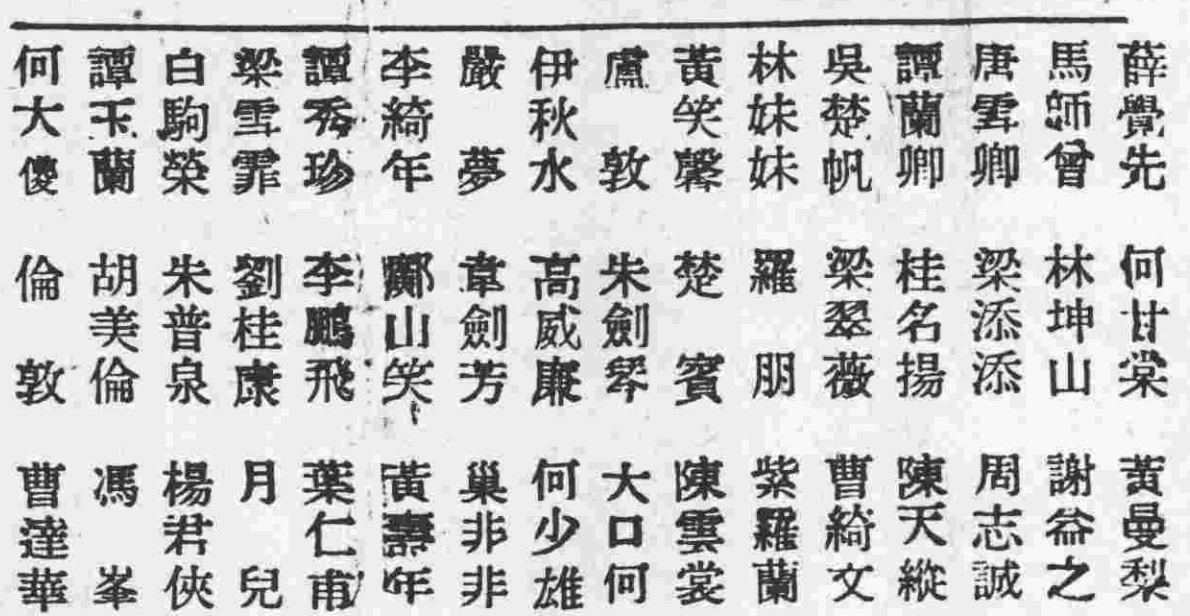 薛覺先
馬師曾
唐雪卿
譚蘭卿
吳楚帆
林妹妹
黃笑馨
盧敦
伊秋水
嚴夢
李綺年
譚秀珍
梁雪霏
白駒榮
譚玉蘭
何大傻
何甘棠
林坤山
梁添添
桂名揚
梁翠薇
羅朋
楚賓
朱劍琴
高威廉
韋劍芳
鄺山笑
李鵬飛
劉桂康
朱普泉
胡美倫
倫敦
黃曼梨
謝益之
周志誠
陳天縱
曹綺文
紫羅蘭
陳雲裳
大口何
何少雄
巢非非
黃壽年
葉仁甫
月兒
楊君俠
馮峯
曹達華